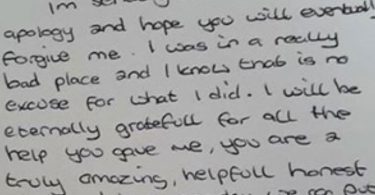 Im
apology and hope you will eventuall
forgive me. I was in a really
bad place and I know that is no
excuse for what I did. I will be
eternally gratefull for all the
help you gave me, you are a
truly amazing, helpfull honest